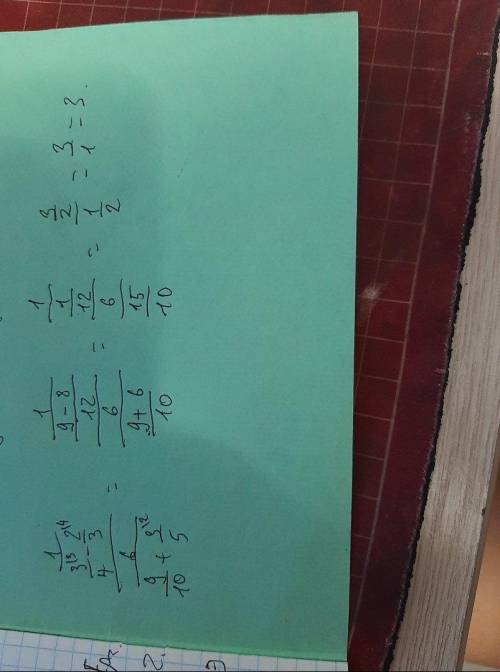 1/(3\3/4 - 2\4/3) / 6/(9/10 + 3\2/5) = 1/((9-8)/12) / 6/((9+6)/10) = 1/(1/12) / 6/(15/10) = (3/2)/(1/2) = 3/1 = 3.
2.